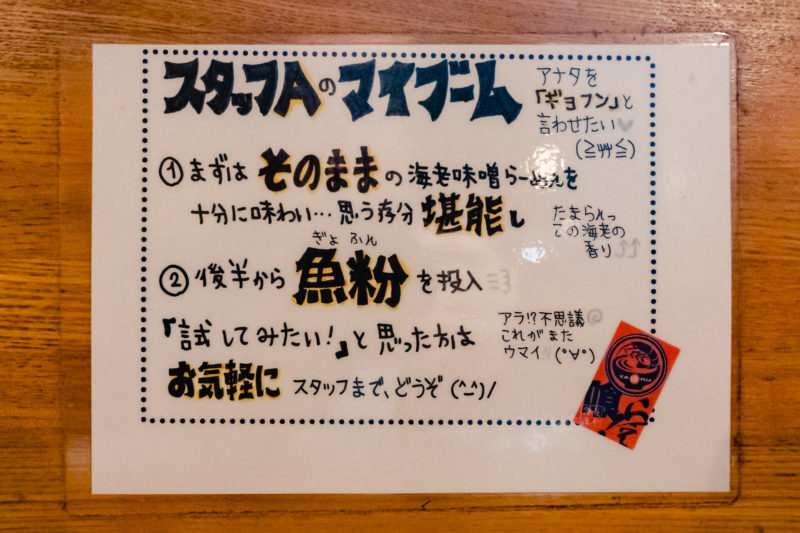 スタッフAのマイブーム
アナタを
「ギョフン」と
言わせたい♥
(≧艸≦)
①まずは そのままの海老味噌らーめんを
十分に味わい…思う存分堪能し
たまらんっ
この海老の
香り↑↑
ぎょ ふん
②後半から魚粉を投入
「試してみたい!」と思った方は
アラ!?不思議
これがまた
ウマイ!!(°∀°)
お気軽に スタッフまで、どうぞ(^-^)/